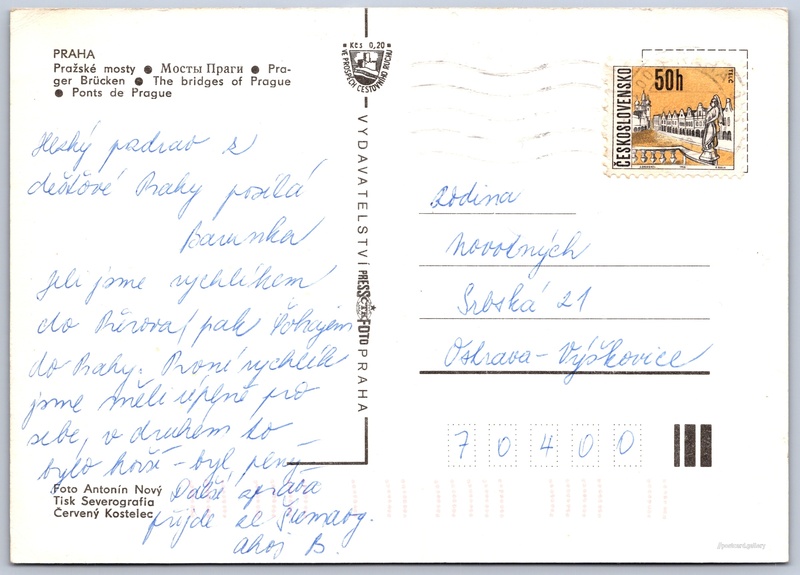 PRAHA
Pražské mosty ● Мосты Праги ● Pra-
ger Brücken ● The bridges of Prague
● Ponts de Prague
Kčs 0,20
VE PROSPĚCH CESTOVNÍHO RUCHU
VYDAVATELSTVÍ PRESSFOTO PRAHA
ČTK
ČESKOSLOVENSKO
50h
TELČ
Hezký pozdrav z
deštivé Prahy posílá
Barunka
Jeli jsme rychlíkem
do Přerova, pak
do Prahy. První rychlík
jsme měli úplně pro
sebe, v druhém to
bylo horší – byl plný
Další zpráva
přijde ze Šumavy.
Ahoj B.
Rodina
Novotných
Srbská 21
Ostrava-Výškovice
70400
Foto Antonín Nový
Tisk Severografia
Červený Kostelec